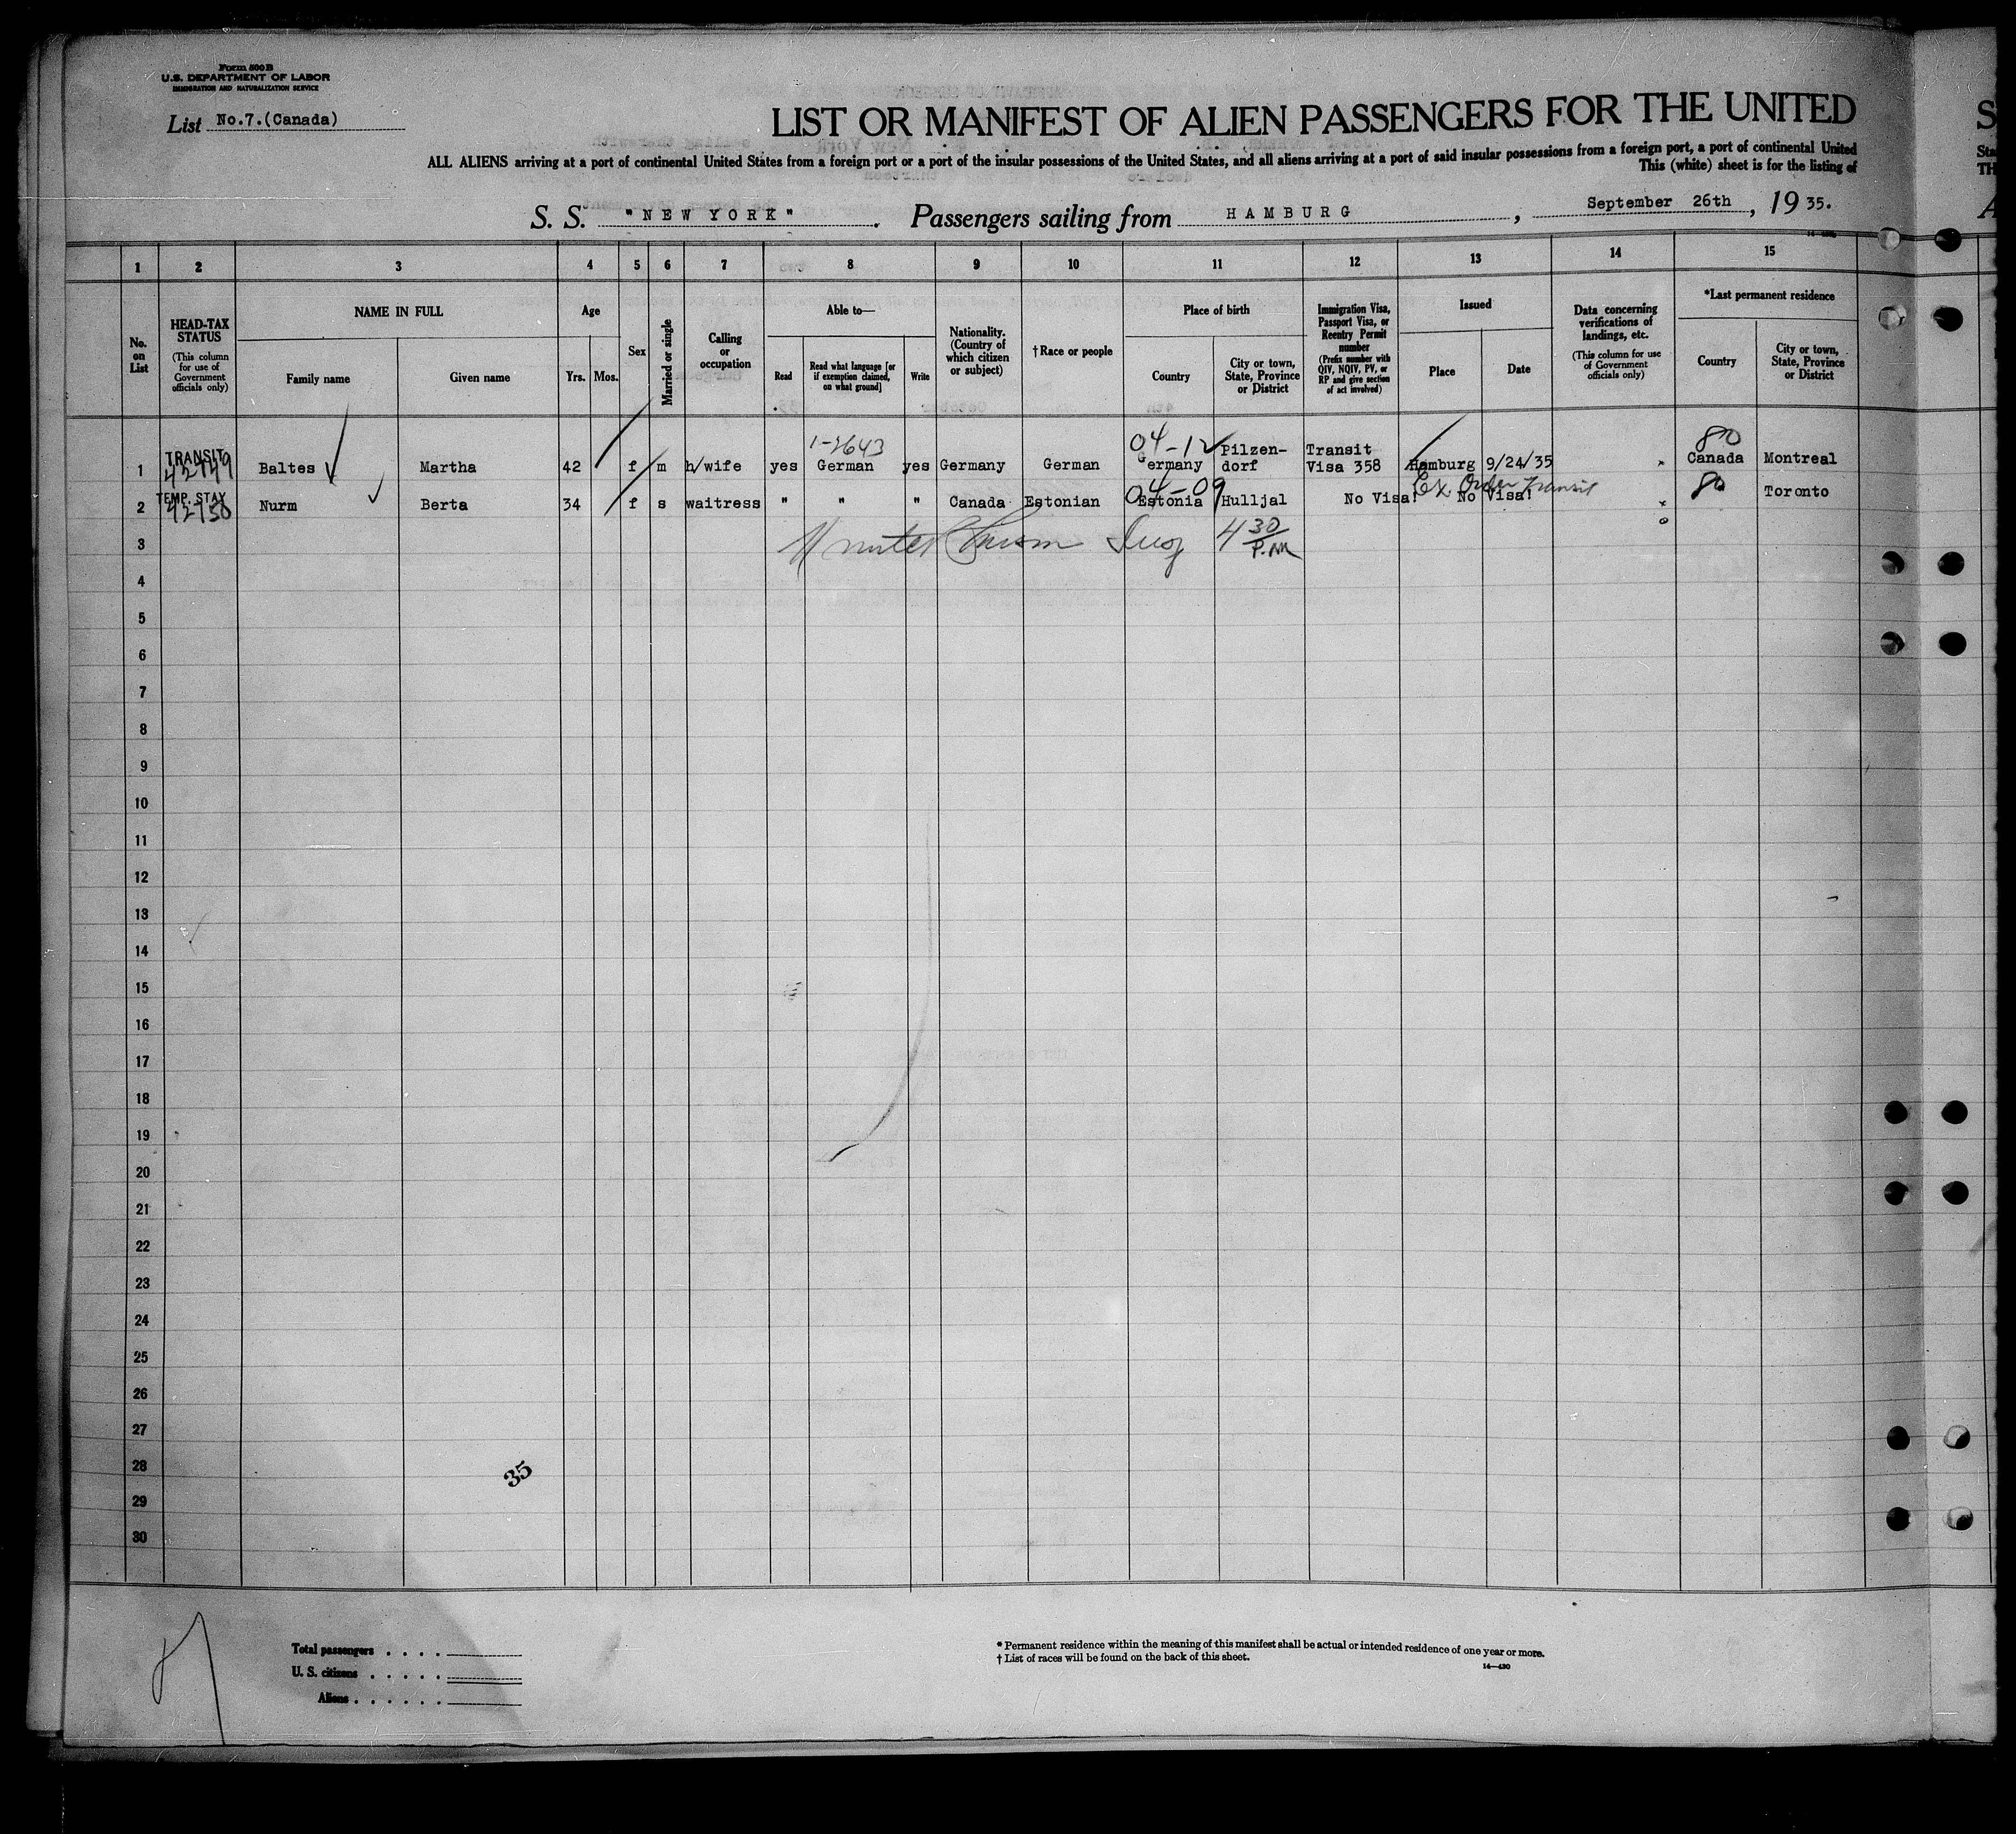 Form 500 B
U.S. DEPARTMENT OF LABOR
IMMIGRATION AND NATURALIZATION SERVICE
List No.7.(Canada)
LIST OR MANIFEST OF ALIEN PASSENGERS FOR THE UNITED
ALL ALIENS arriving at a port of continental United States from a foreign port or a port of the insular possessions of the United States, and all aliens arriving at a port of said insular possessions from a foreign port, a port of continental United
This (white) sheet is for the listing of
S. S. "NEW YORK". Passengers sailing from HAMBURG, September 26th, 1935.
1 2 3 4 5 6 7 8 9 10 11 12 13 14 15
No. on List
HEAD-TAX STATUS
(This column for use of Government officials only)
NAME IN FULL
Family name
Given name
Age
Yrs. Mos.
Sex
Married or single
Calling or occupation
Able to—
Read
Read what language [or if exemption claimed, on what ground]
Write
Nationality. (Country of which citizen or subject)
† Race or people
Place of birth
Country
City or town, State, Province or District
Immigration Visa, Passport Visa, or Reentry Permit number
(Prefix number with QIV, NQIV, PV, or RP and give section of act involved)
Issued
Place
Date
Data concerning verifications of landings, etc.
(This column for use of Government officials only)
*Last permanent residence
Country
City or town, State, Province or District
1-2643 04-12 80
1 TRANSIT 42749 Baltes Martha 42 f m h/wife yes German yes Germany German Germany Pilzen-dorf Transit Visa 358 Hamburg 9/24/35 Canada Montreal
04-09 Ex Order Transit 80
2 TEMP. STAY 42750 Nurm Berta 34 f s waitress " " " Canada Estonian Estonia Hulljal No Visa! No Visa! Toronto
3 4 30 P.M
4
5
6
7
8
9
10
11
12
13
14
15
16
17
18
19
20
21
22
23
24
25
26
27
28
29
30
35
Total passengers . . . .
U. S. citizens . . . . .
Aliens . . . . . .
* Permanent residence within the meaning of this manifest shall be actual or intended residence of one year or more.
† List of races will be found on the back of this sheet.
14—430